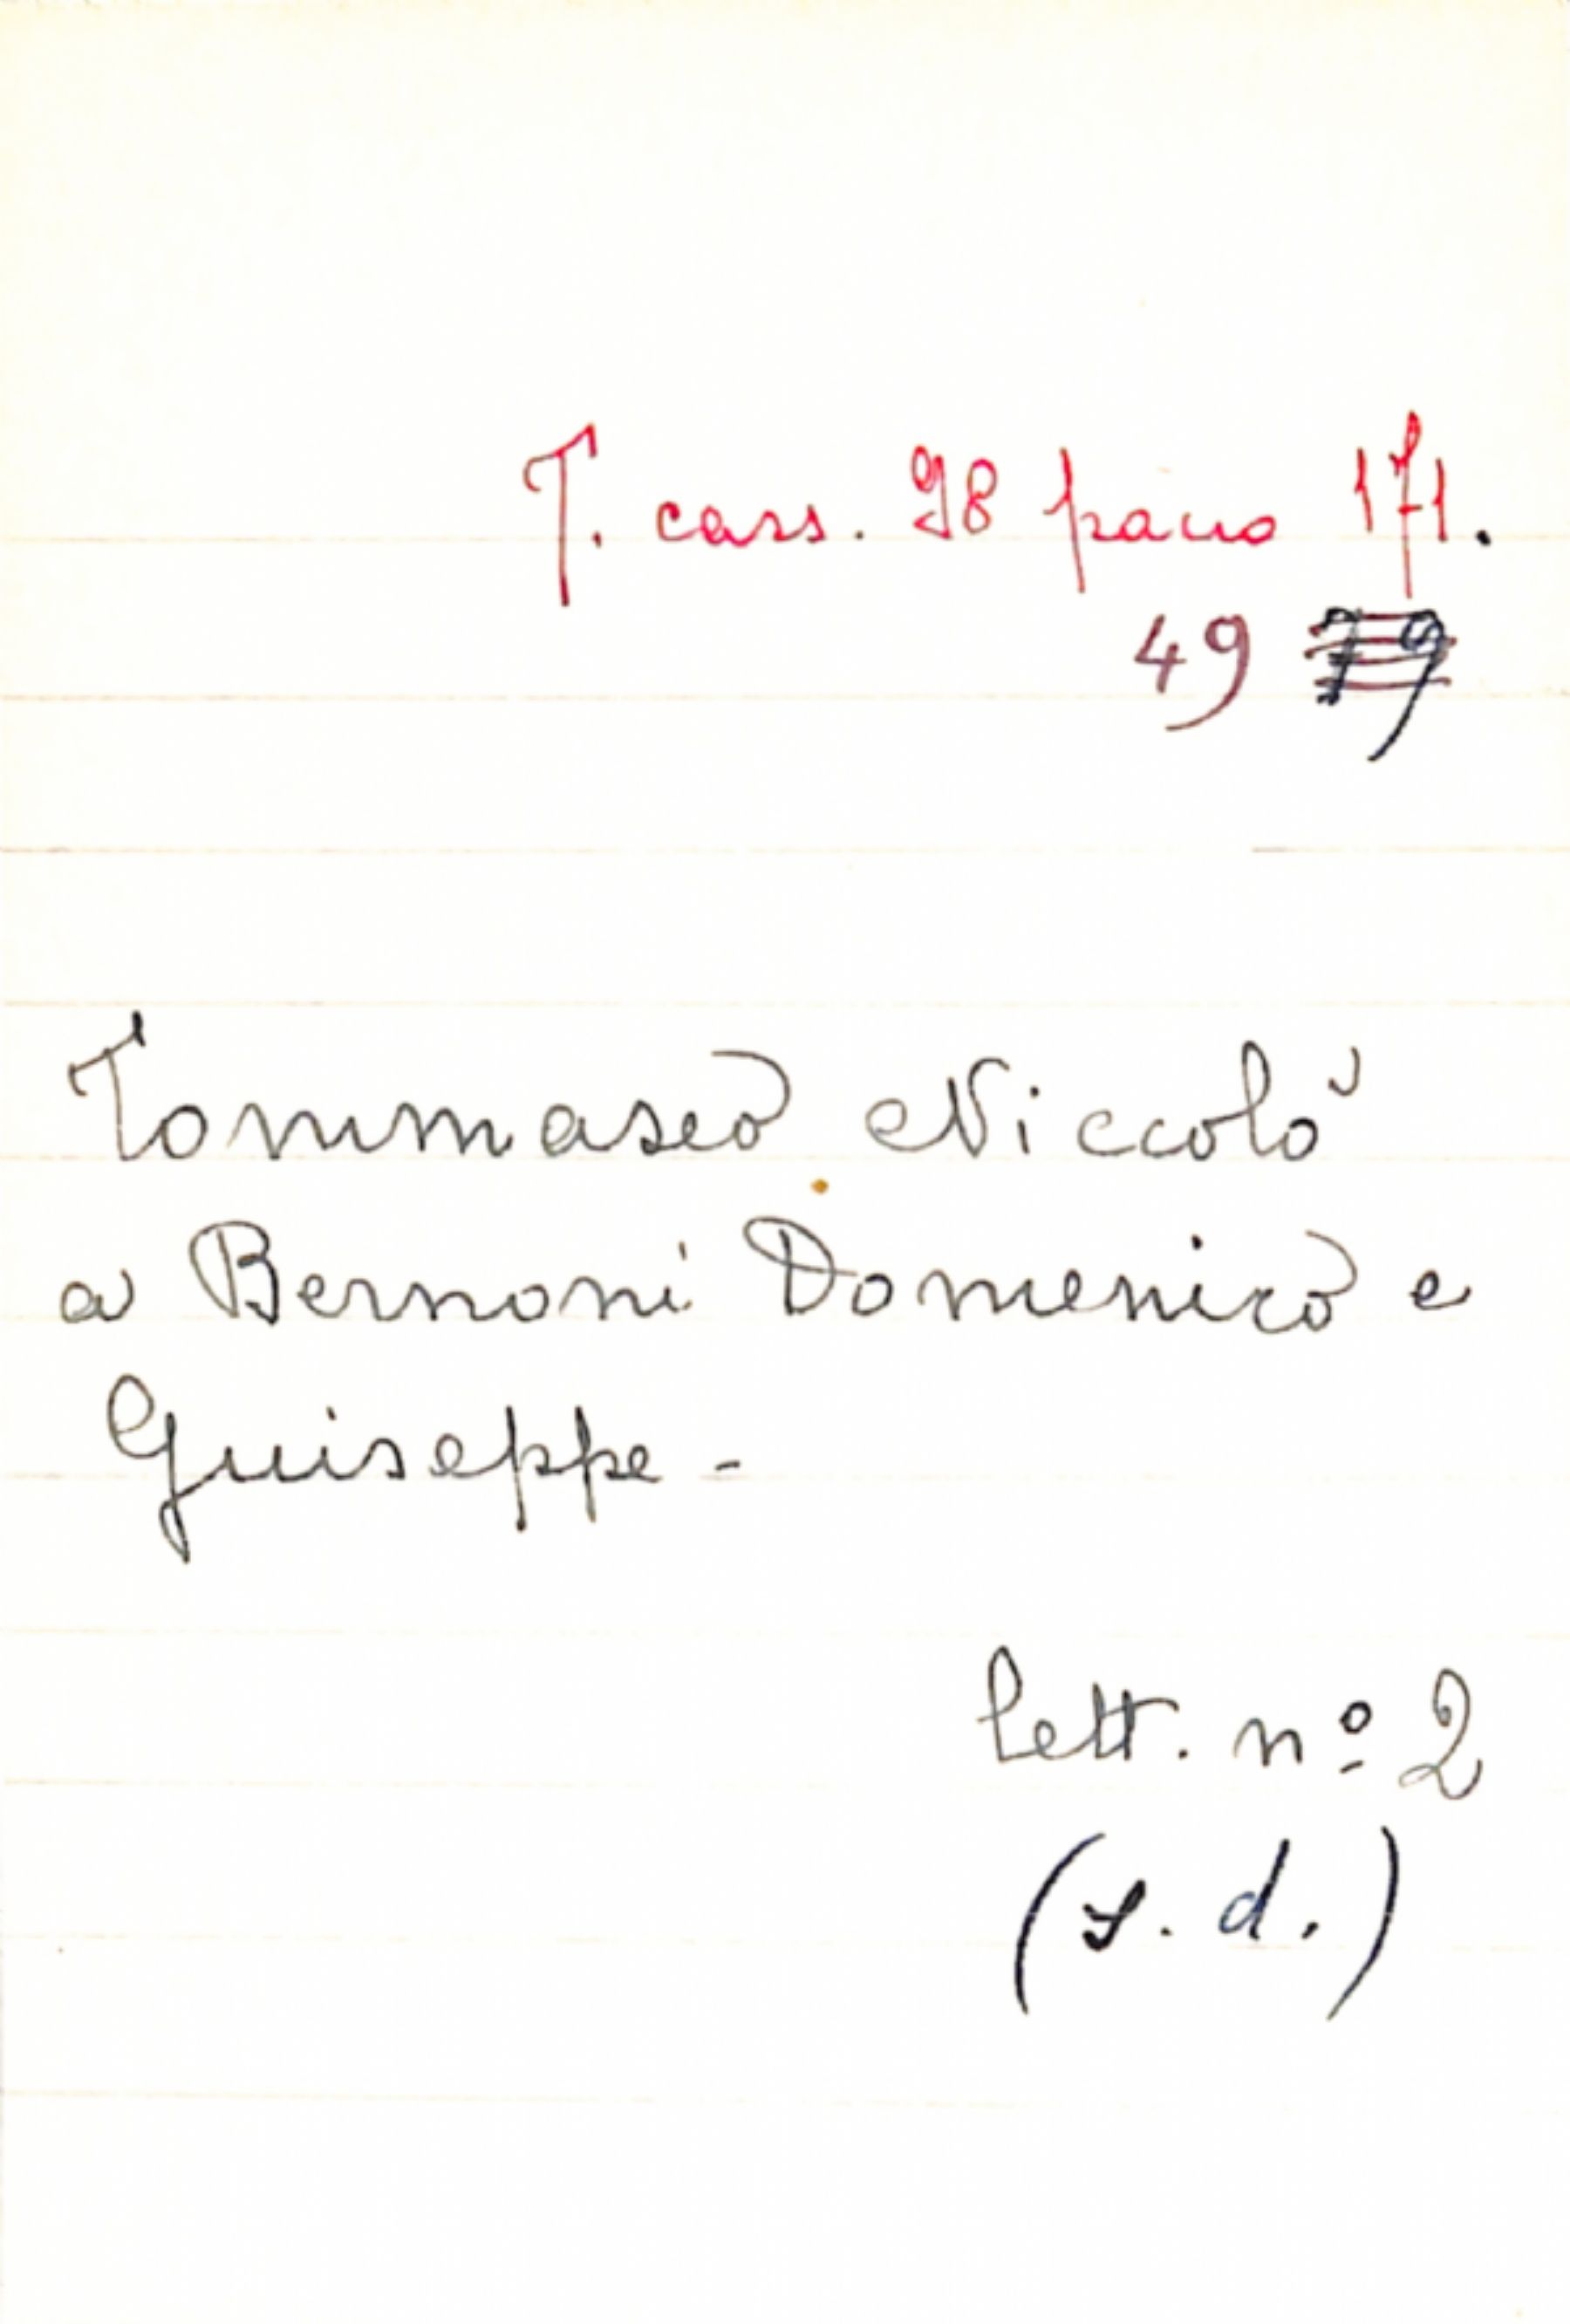 T. cass. 98 pacco 171.
49 79
Tommaseo Niccolò
a Bernoni Domenico e
Giuseppe -
lett. nº 2
(s. d.)